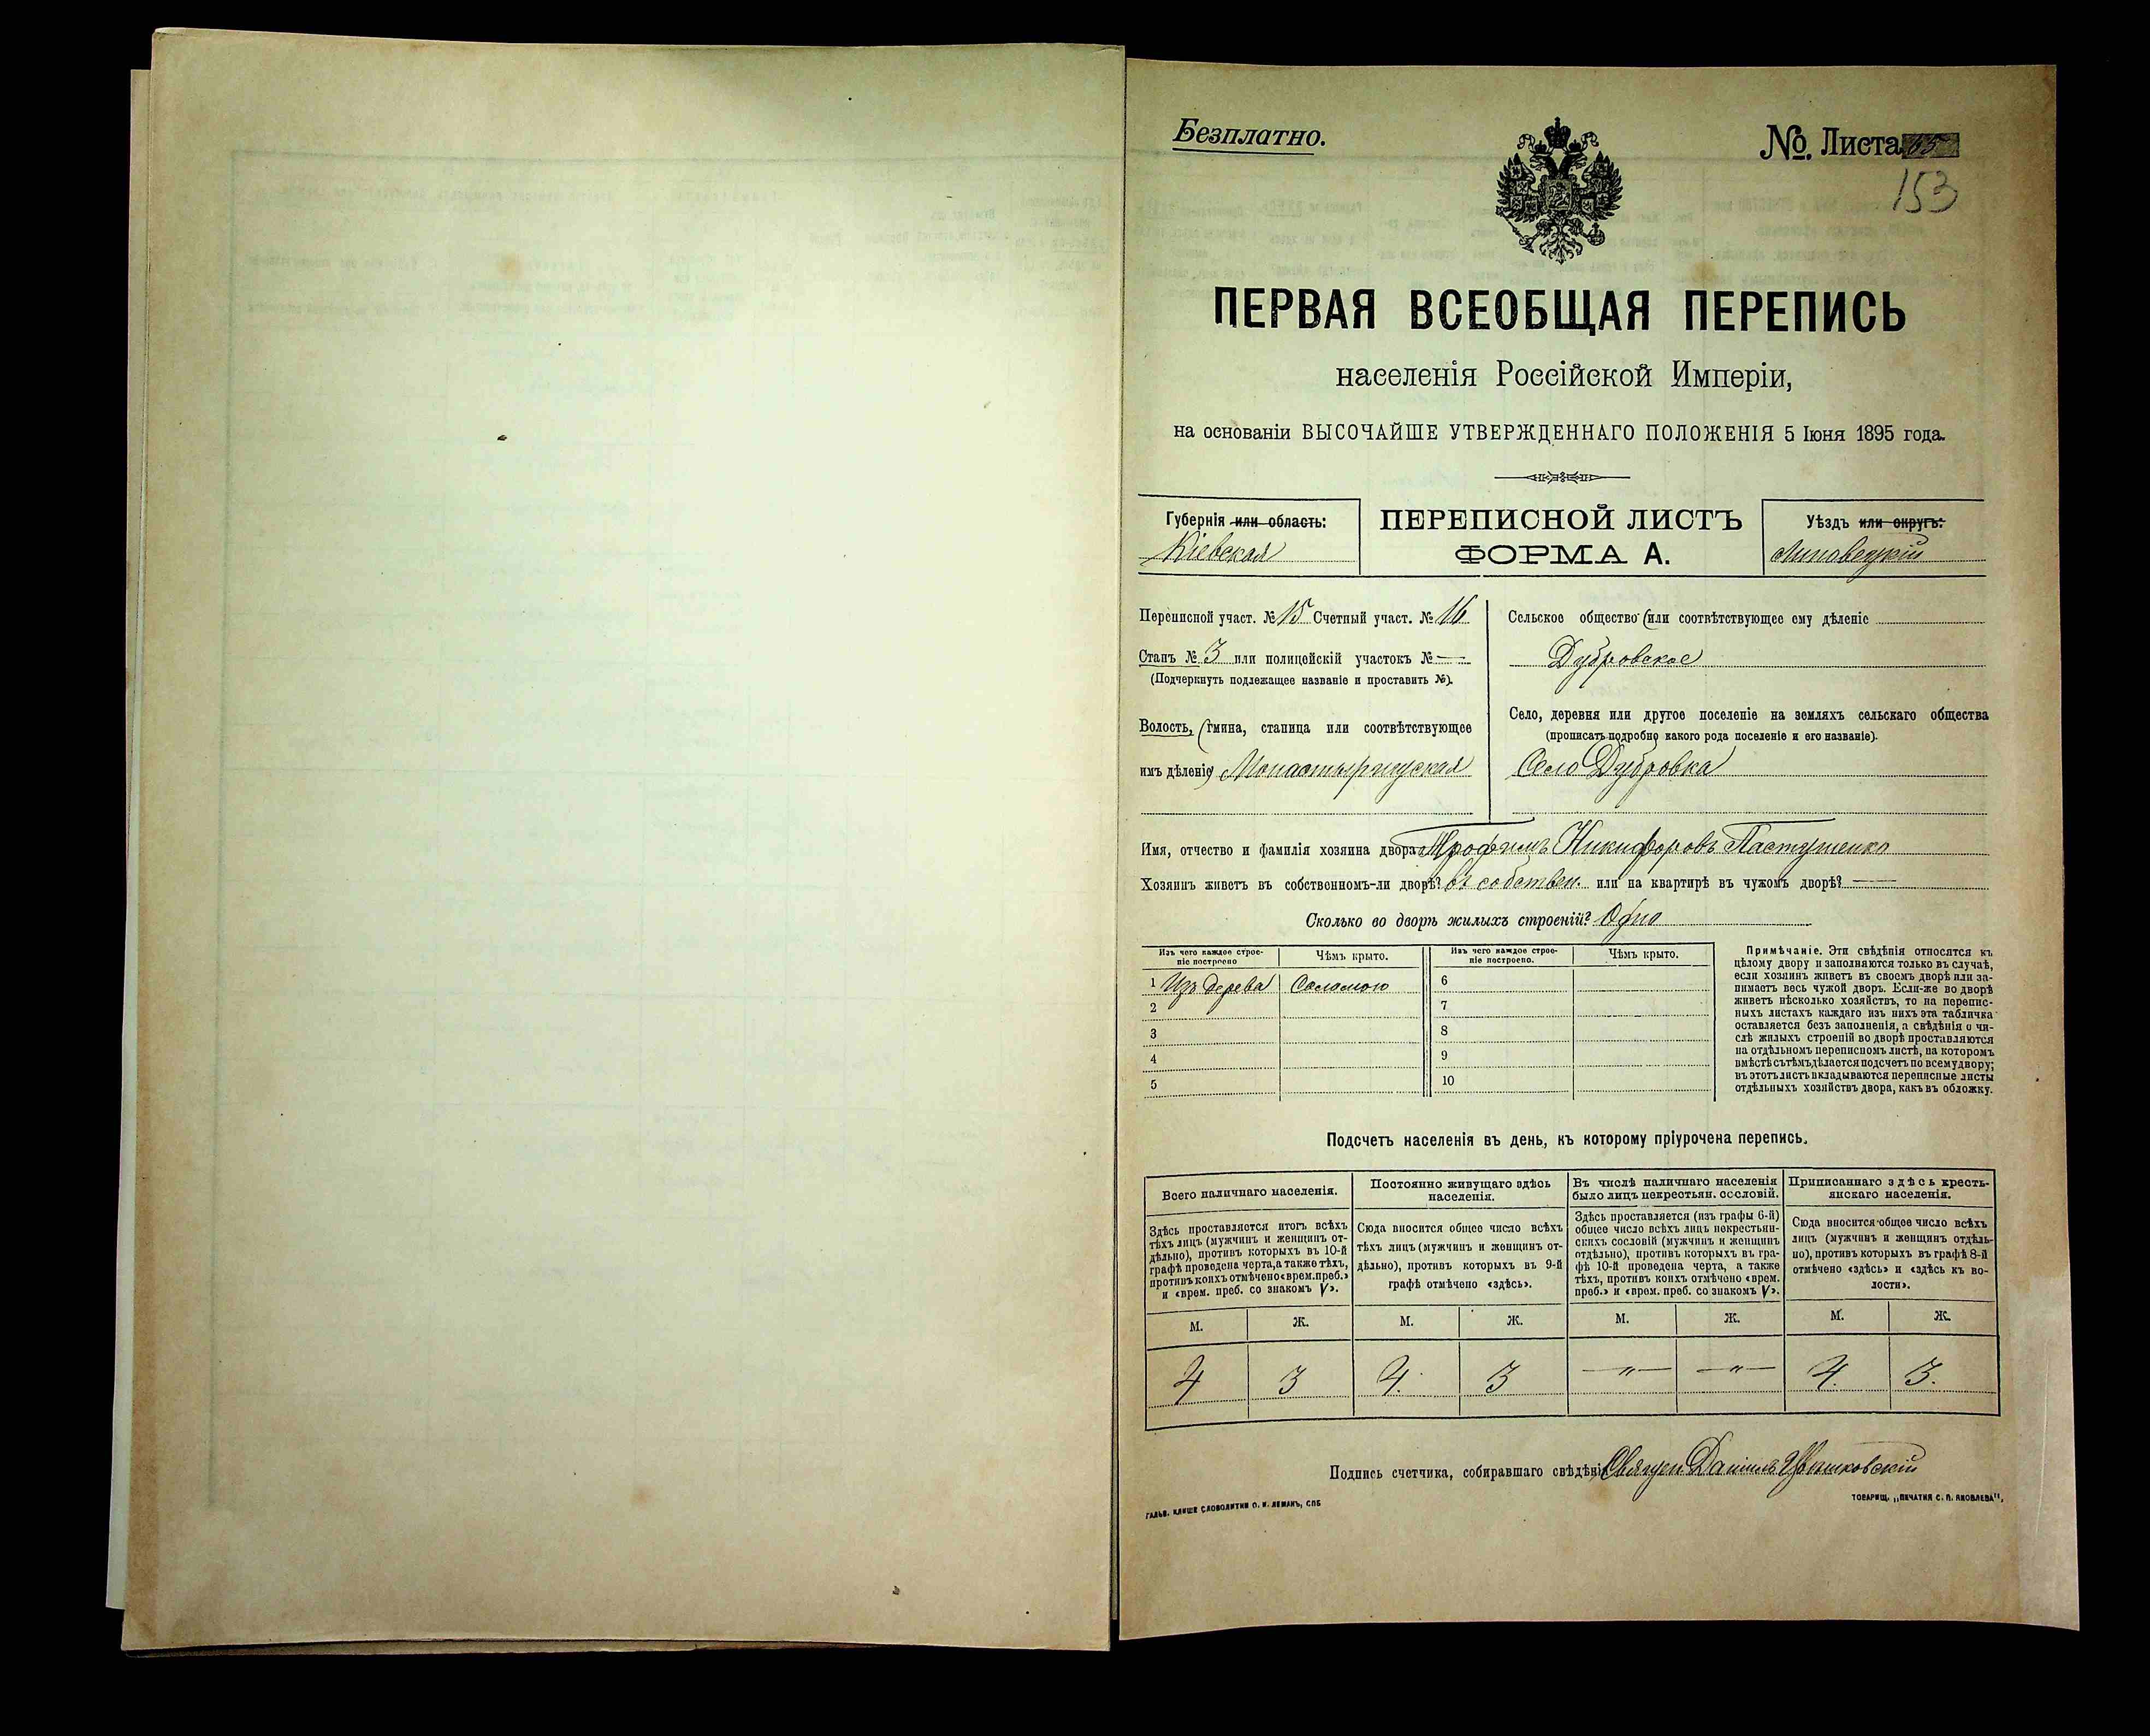 Безплатно.
№. Листа 65
153
ПЕРВАЯ ВСЕОБЩАЯ ПЕРЕПИСЬ
населенія Россійской Имперіи,
на основаніи ВЫСОЧАЙШЕ УТВЕРЖДЕННАГО ПОЛОЖЕНІЯ 5 Іюня 1895 года.
Губернія или область:
Кіевская
ПЕРЕПИСНОЙ ЛИСТЪ
ФОРМА А.
Уѣздъ или округъ:
Липовецкій
Переписной участ. № 15 Счетный участ. № 16
Станъ № 3 или полицейскій участокъ № —
(Подчеркнуть подлежащее названіе и проставить №).
Волость, (гмина, станица или соотвѣтствующее
имъ дѣленіе) Монастырищская
Сельское общество (или соотвѣтствующее ему дѣленіе
Дубровское
Село, деревня или другое поселеніе на земляхъ сельскаго общества
(прописать подробно какого рода поселеніе и его названіе).
Село Дубровка
Имя, отчество и фамилія хозяина двора Трофимъ Никифоровъ Пастушенко
Хозяинъ живетъ въ собственномъ-ли дворѣ? въ собствен. или на квартирѣ въ чужомъ дворѣ? —
Сколько во дворѣ жилыхъ строеній? Одно
Изъ чего каждое строе-
ніе построено
Чѣмъ крыто.
Изъ чего каждое строе-
ніе построено.
Чѣмъ крыто.
1 Изъ дерева Соломою
2
3
4
5
6
7
8
9
10
Примѣчаніе. Эти свѣдѣнія относятся къ
цѣлому двору и заполняются только въ случаѣ,
если хозяинъ живетъ въ своемъ дворѣ или за-
нимаетъ весь чужой дворъ. Если-же во дворѣ
живетъ нѣсколько хозяйствъ, то на перепис-
ныхъ листахъ каждаго изъ нихъ эта табличка
оставляется безъ заполненія, а свѣдѣнія о чи-
слѣ жилыхъ строеній во дворѣ проставляются
на отдѣльномъ переписномъ листѣ, на которомъ
вмѣстѣ съ тѣмъ дѣлается подсчетъ по всему двору;
въ этотъ листъ вкладываются переписные листы
отдѣльныхъ хозяйствъ двора, какъ въ обложку.
Подсчетъ населенія въ день, къ которому пріурочена перепись.
Всего наличнаго населенія.
Здѣсь проставляется итогъ всѣхъ
тѣхъ лицъ (мужчинъ и женщинъ от-
дѣльно), противъ которыхъ въ 10-й
графѣ проведена черта, а также тѣхъ,
противъ коихъ отмѣчено «врем. преб.»
и «врем. преб. со знакомъ V».
Постоянно живущаго здѣсь
населенія.
Сюда вносится общее число всѣхъ
тѣхъ лицъ (мужчинъ и женщинъ от-
дѣльно), противъ которыхъ въ 9-й
графѣ отмѣчено «здѣсь».
Въ числѣ наличнаго населенія
было лицъ некрестьян. сословій.
Здѣсь проставляется (изъ графы 6-й)
общее число всѣхъ лицъ некрестьян-
скихъ сословій (мужчинъ и женщинъ
отдѣльно), противъ которыхъ въ гра-
фѣ 10-й проведена черта, а также
тѣхъ, противъ коихъ отмѣчено «врем.
преб.» и «врем. преб. со знакомъ V».
Приписаннаго здѣсь кресть-
янскаго населенія.
Сюда вносится общее число всѣхъ
лицъ (мужчинъ и женщинъ отдѣль-
но), противъ которыхъ въ графѣ 8-й
отмѣчено «здѣсь» и «здѣсь къ во-
лости».
М. Ж. М. Ж. М. Ж. М. Ж.
4 3 4. 3 —"— —"— 4. 3.
Подпись счетчика, собиравшаго свѣдѣнія Священ. Даніилъ
ГАЛЬВ. КЛИШЕ СЛОВОЛИТНИ О. И. ЛЕМАНЪ, СПБ
ТОВАРИЩ. „ПЕЧАТНЯ С. П. ЯКОВЛЕВА",